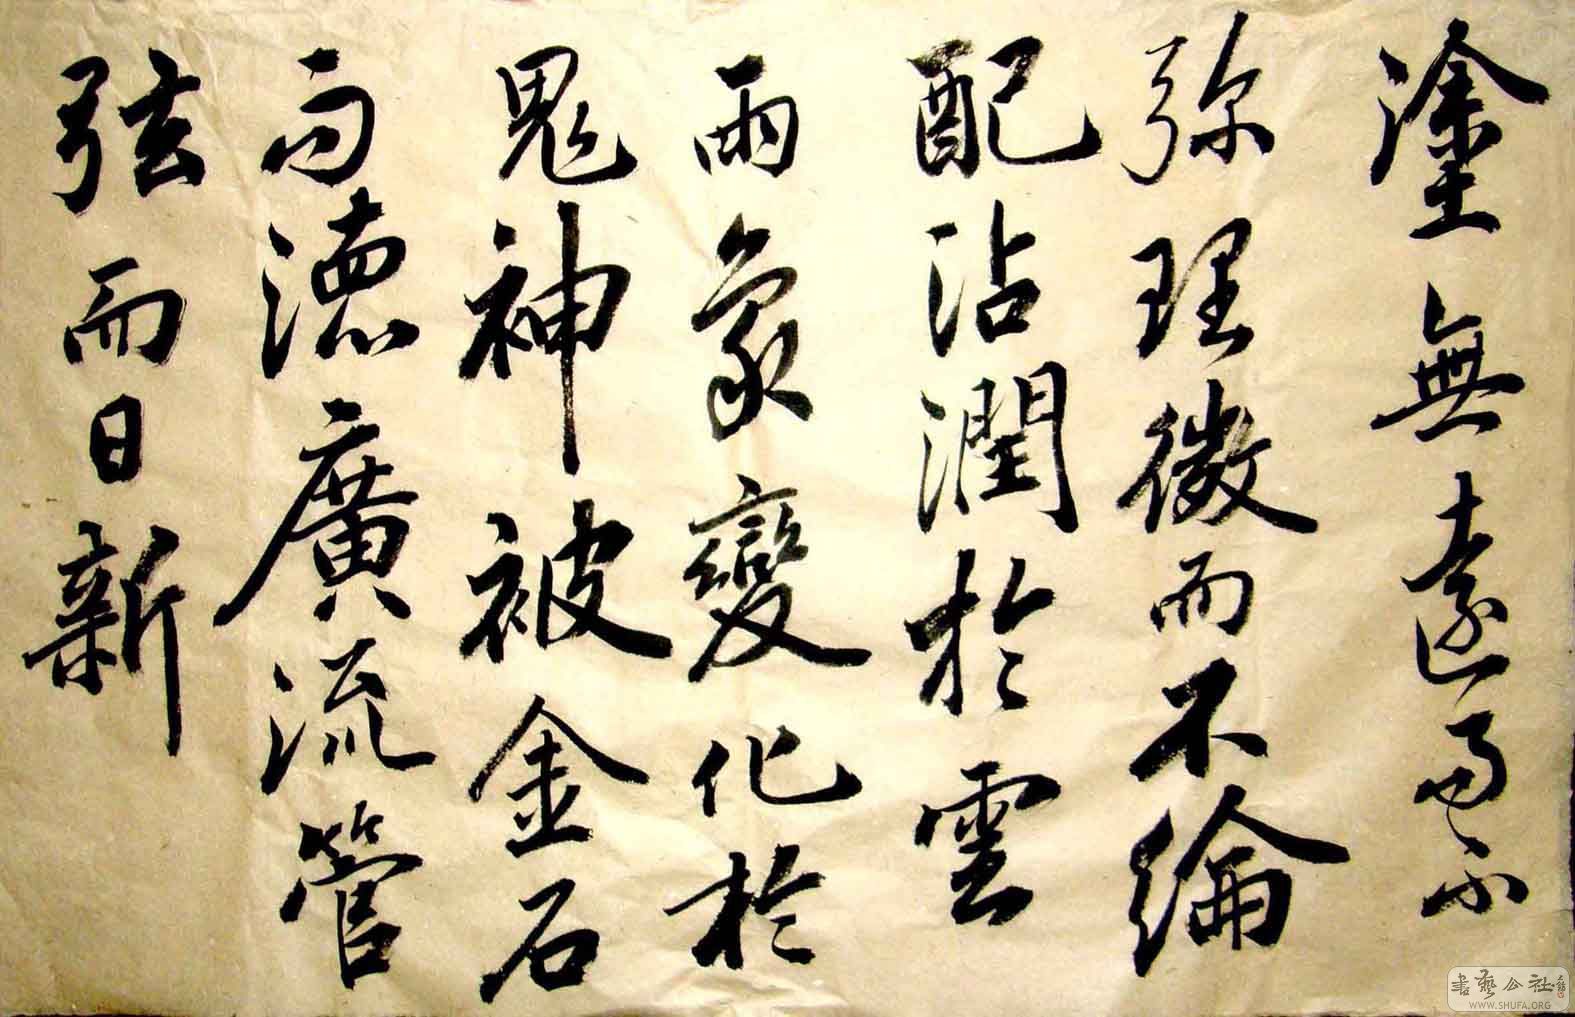 塗無遠而不
弥理微而不綸
配沾潤於雲
雨象變化於
鬼神被金石
而德廣流管
弦而日新
書藝公社
WWW.SHUFA.ORG